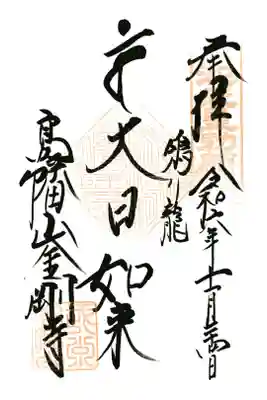 奉拝 令和六年十一月
鳴り龍
大日如来
高幡山金剛寺